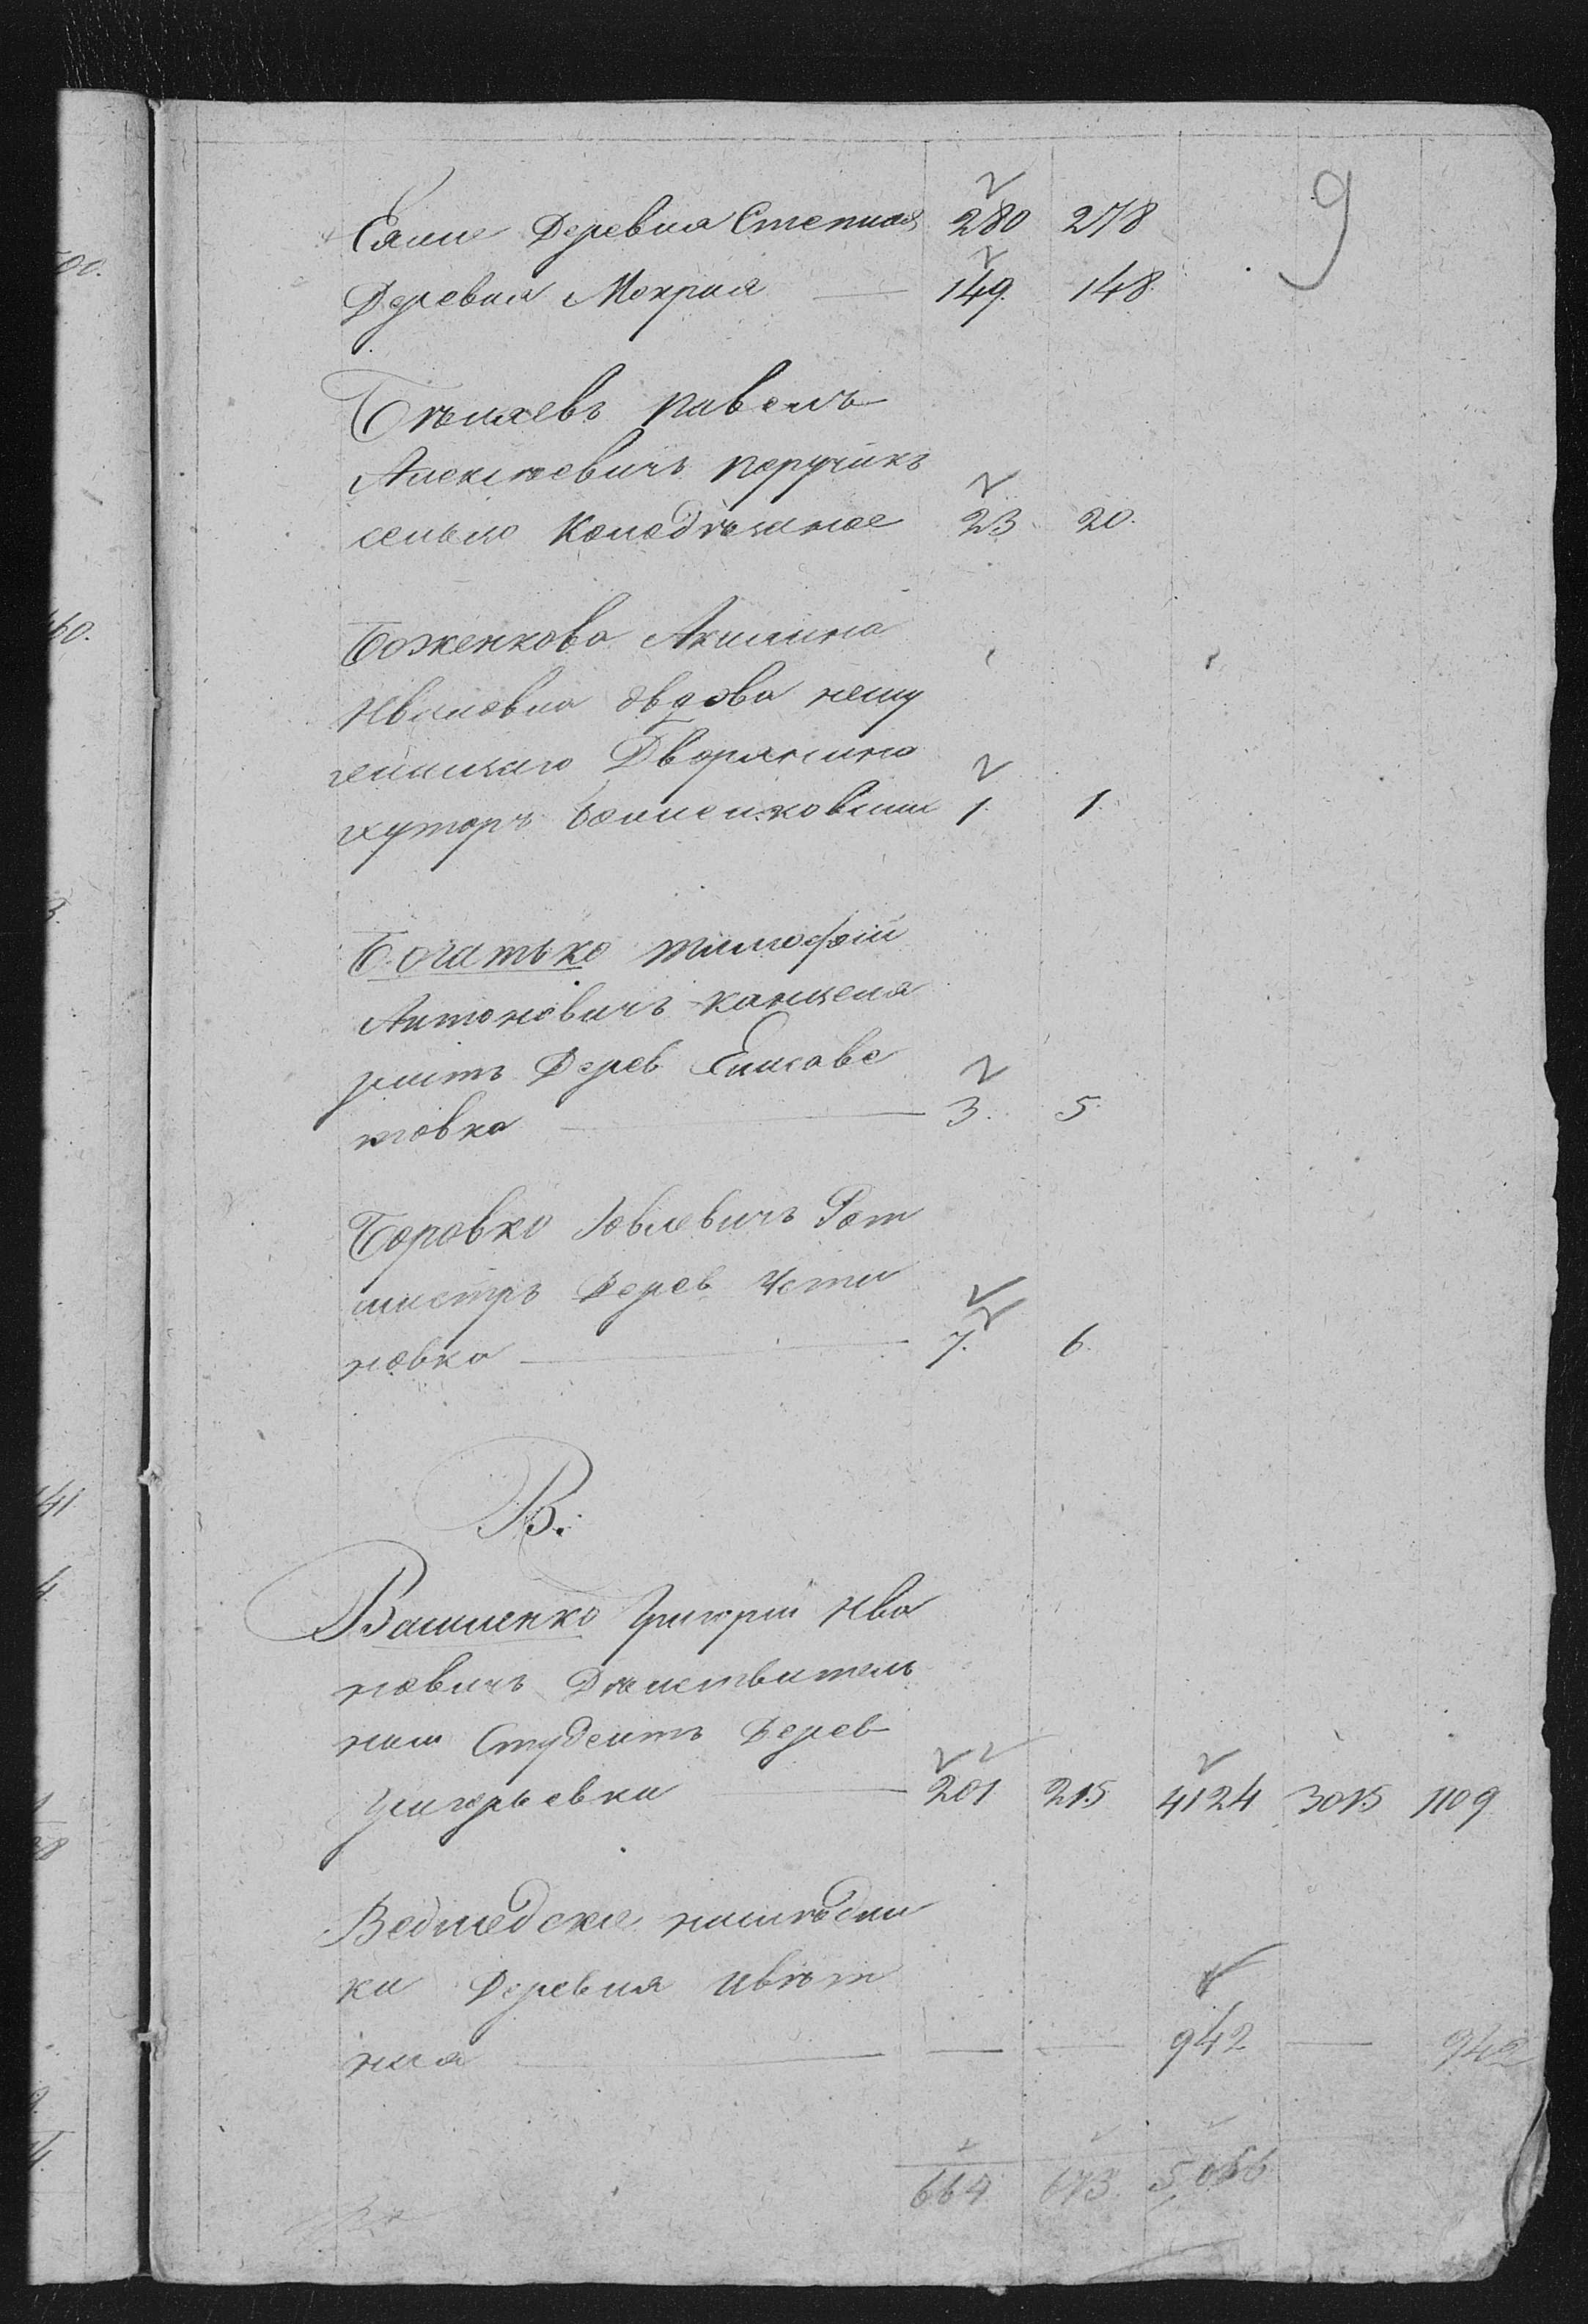 9
Еяже Деревня Степная 280 278
Деревня Мокрая — 149. 148.
Бѣляевъ Павелъ
Алексѣевичъ Поручикъ
сельцо Колодѣжное 23 20.
Боженкова Акилина
Ивановна вдова нешу
хуторъ 1. 1.
Богатько Тимофей
Антоновичъ Канцеля
ристъ Дерев Елисаве
товка — 3. 5.
Боровко Іовлевичъ Рот
мистръ Дерев Усти
новка — 7. 6.
В.
Вашленко Григорій Ива
новичъ Дѣйствитель
ный Студентъ Дерев
Григорьевка — 201 215 4124 3015 1109
Ведмедскіе наслѣдни
ки Деревня Цвѣт
ная — — — 942 — 942
664 673. 5066